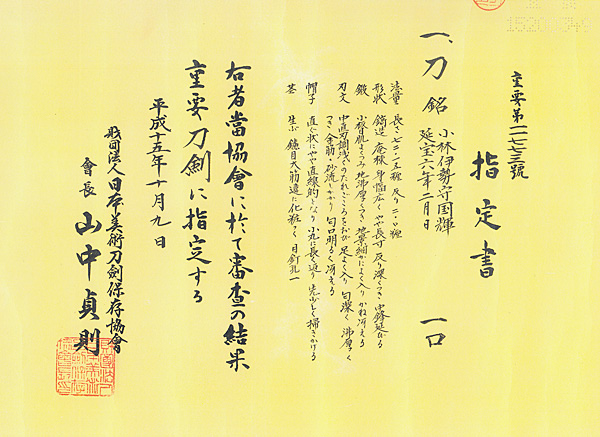 重要第一一七三號
指定書
一、刀 銘 小林伊勢守国輝
延宝六年二月日 一口
法量 長さ七二・一五糎 反り二・〇糎
形状 鎬造 庵棟 身幅広く やや長寸 反り深くつき 中鋒延びる
鍛 小杢目肌つみ 地沸厚くつき 地景細かによく入り かね冴える
刃文 中直刃調 浅くのたれごころをおび 足よく入り 匂深く 沸厚く
つき 金筋・砂流しかかり 匂口明るく冴える
帽子 直ぐ状にやや直線的となり 小丸に長く返り 先少しく掃きかける
茎 生ぶ 鑢目大筋違に化粧つく 目釘孔一
右者當協會に於て審査の結果
重要刀劍に指定する
平成十五年十月九日
財団法人日本美術刀劍保存協會
會長 山中貞則